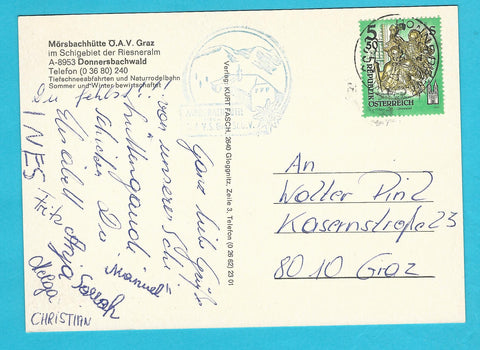 Mörsbachhütte Ö.A.V. Graz
im Schigebiet der Riesneralm
A-8953 Donnersbachwald
Telefon (0 36 80) 240
Tiefschneeabfahrten und Naturrodelbahn
Sommer und Winter bewirtschaftet
Verlag: KURT FASCH, 2640 Gloggnitz, Zeile 3, Telefon (0 26 62) 23 01
5 50
REPUBLIK
ÖSTERREICH
Ganz liebe Grüße
von unserer Schi
hüttengaudi
schicken Dir
Du fehlst!!
Elisabeth
INES
Fritz
Anja
Sarah
"Manuel"
Helga
CHRISTIAN
An
Walter Pinl
Kasernstraße 23
8010 Graz